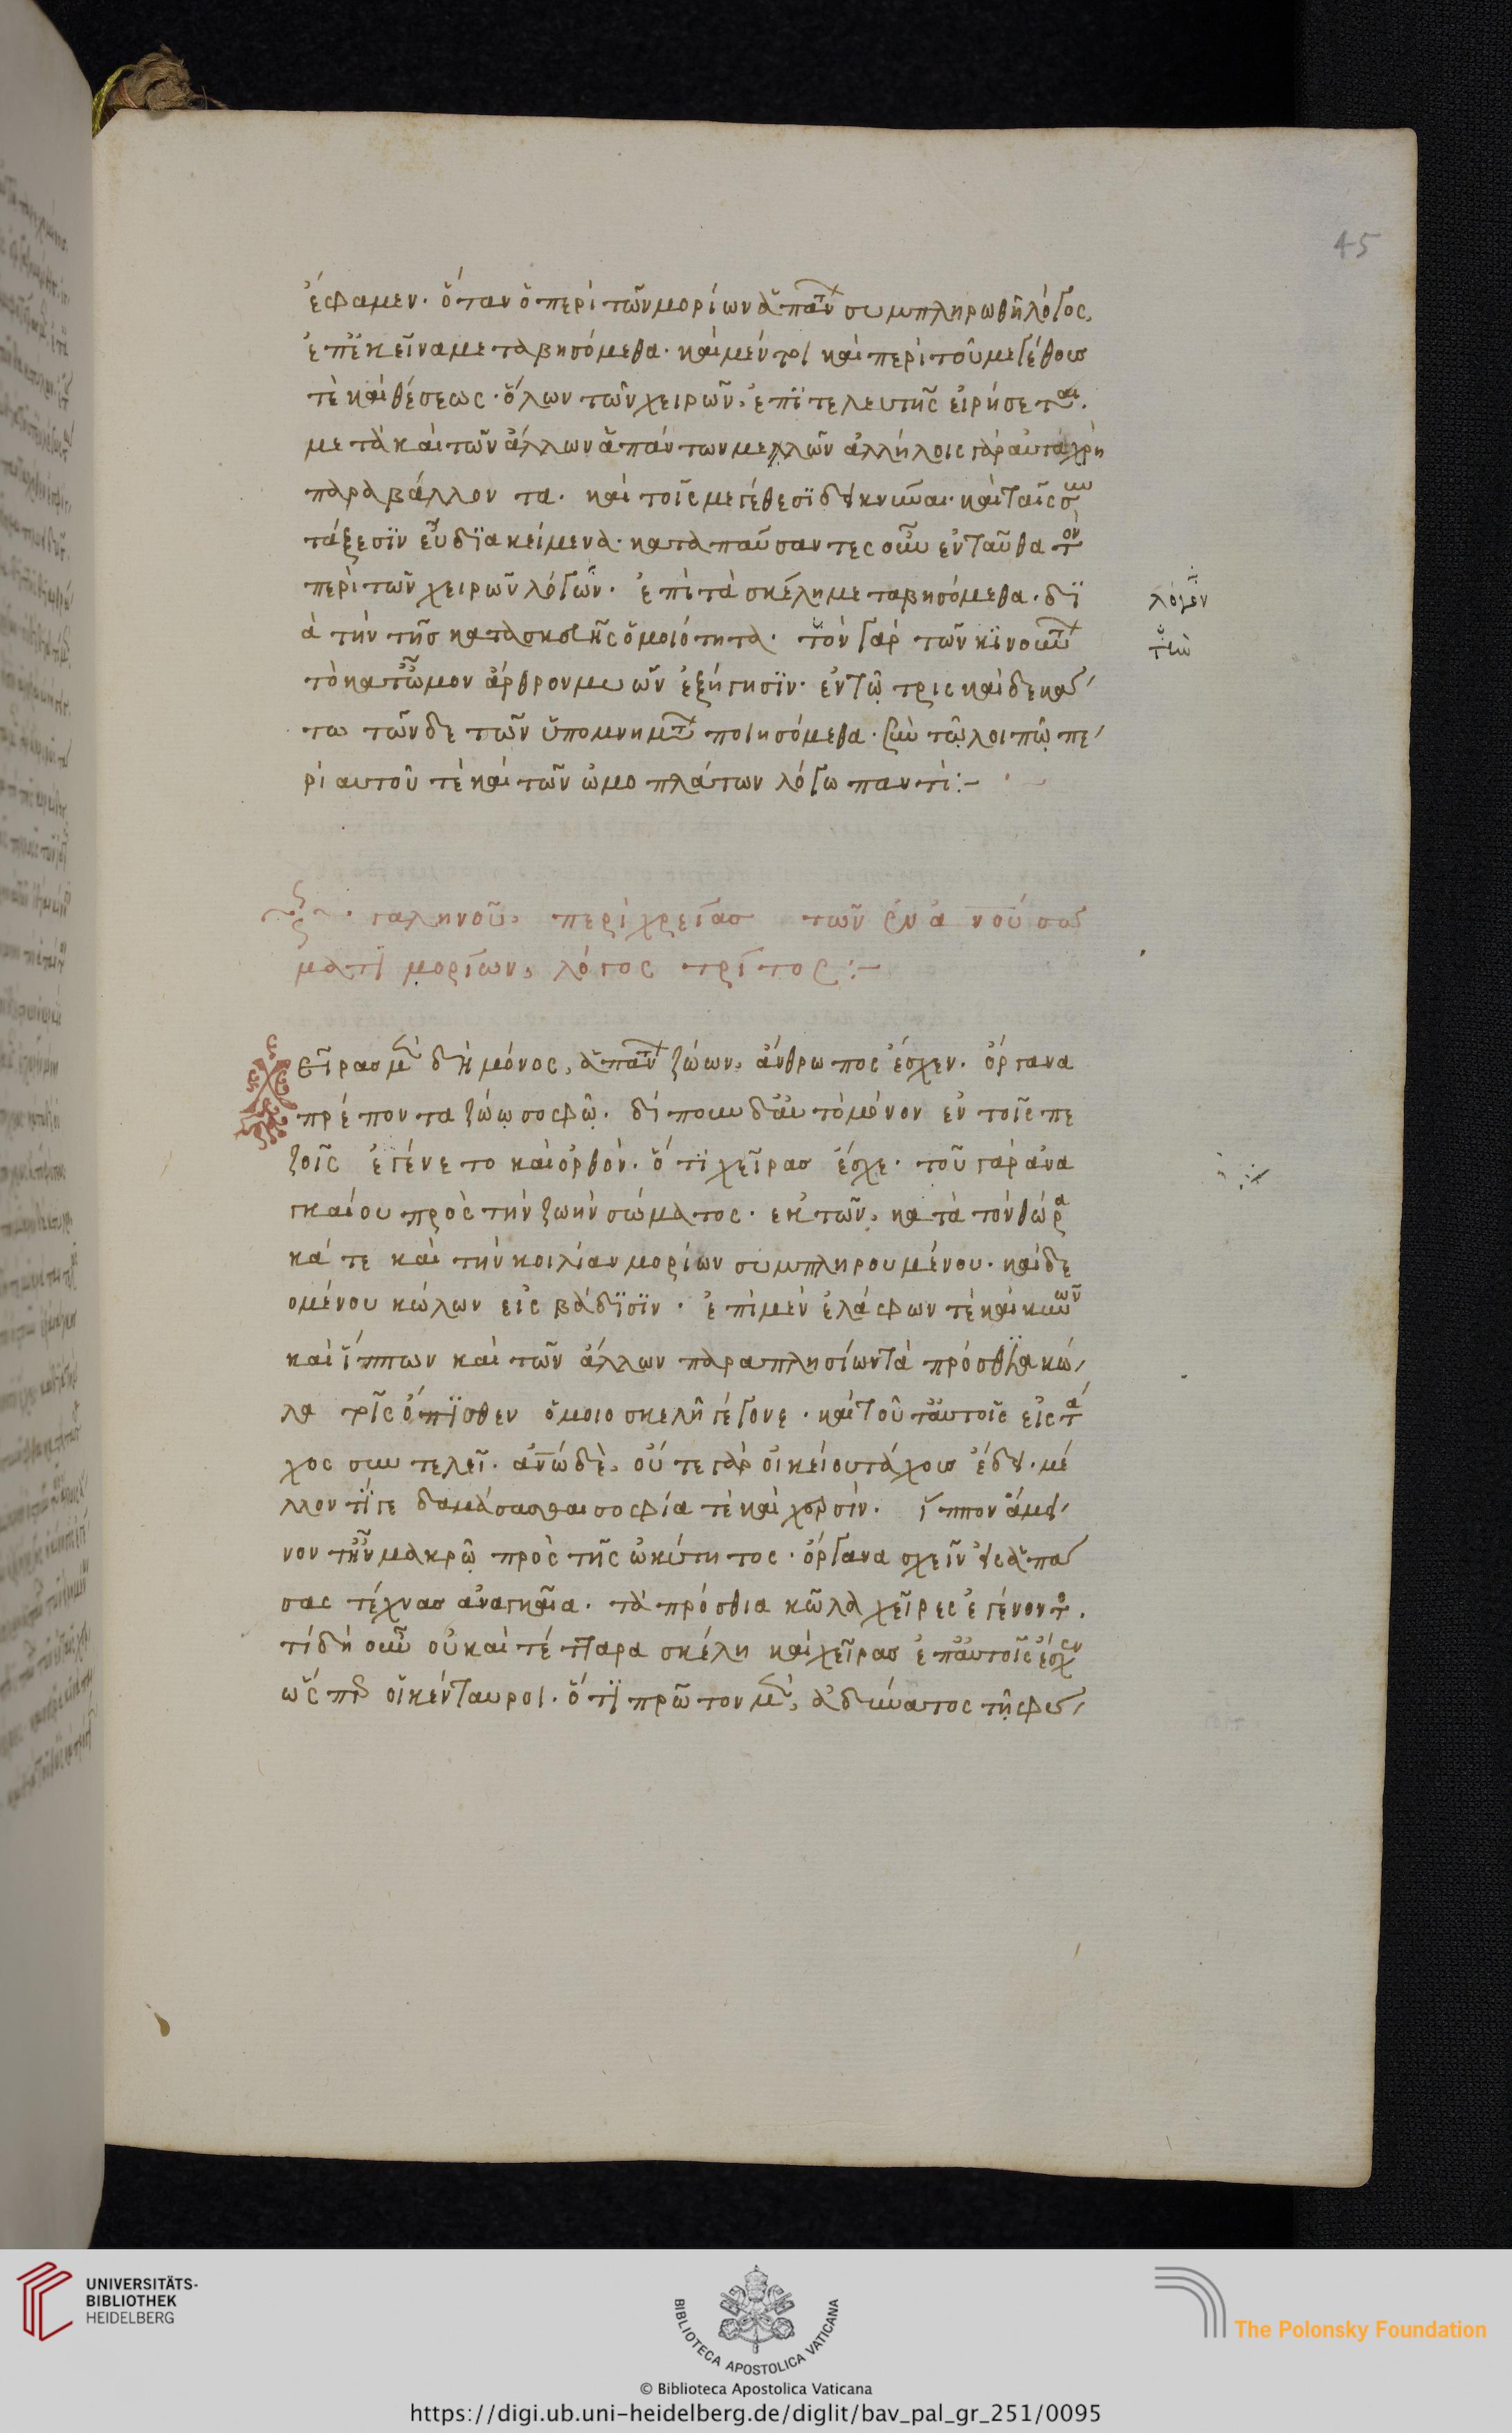 45
ἔφαμεν· ὅταν ὁ περὶ τῶν μορίων ἁπάντων συμπληρωθῇ λόγος,
ἐπ' ἐκεῖνα μεταβησόμεθα· καὶ μέν τοι καὶ περὶ τοῦ μεγέθους
τὲ καὶ θέσεως· ὅλων τῶν χειρῶν, ἐπὶ τελευτῆς εἰρήσεται.
μετὰ καὶ τῶν ἄλλων ἁπάντων μελλῶν ἀλλήλοις γὰρ αὐτὰ χρὴ
παραβάλλοντα· καὶ τοῖς μεγέθεσϊ δεικνῦναι· καὶ ταῖς συν
τάξεσϊν εὖ δϊακείμενα· καταπαύσαντες οὖν ἐνταῦθα τὸν
περὶ τῶν χειρῶν λόγων· ἐπὶ τὰ σκέλη μεταβησόμεθα· δϊ
λόγον
ὰ τὴν τῆς κατασκευῆς ὁμοιότητα· τὸν γὰρ τῶν κϊνούντων
τὴν
τὸ κατ' ὦμον ἄρθρον μυῶν ἐξήγησϊν· ἐν τῷ τρὶς καὶ δεκά
τω τῶν δε τῶν ὑπομνημάτων ποιησόμεθα· σὺν τῷ λοιπῷ πε
ρὶ αυτοῦ τὲ καὶ τῶν ὠμοπλάτων λόγω παντί:-
γαληνοῦ, περὶ χρείας τῶν ἐν ἀνου σώ
ματϊ μορίων, λόγος τρίτος:-
Χεῖρας μὲν δὴ μόνος, ἁπάντων ζώων, ἄνθρωπος ἔσχεν· ὄργανα
πρέποντα ζώῳ σοφῷ· δίπουν δ' αυτὸ μόνον ἐν τοῖς πε
ζοῖς ἐγένετο καὶ ὀρθὸν· ὅτϊ χεῖρας ἔσχε· τοῦ γὰρ ἀνα
γκαίου πρὸς τὴν ζωὴν σώματος· εκ τῶν, κατὰ τὸν θώρα
κά τε καὶ τὴν κοιλίαν μορίων συμπληρουμένου· καὶ δε
ομένου κώλων εἰς βάδϊσϊν· ἐπὶ μὲν ἐλάφων τὲ καὶ κυνῶν
καὶ ἵππων καὶ τῶν ἄλλων παραπλησίων τὰ πρόσθϊα κώ
λα τοῖς ὄπϊσθεν ὁμοιοσκελῆ γέγονε· καὶ τοῦτ' αυτοῖς εἰς τά
χος συντελεῖ· ἀνῳ δὲ, οὔτε γὰρ οἰκείου τάχους ἔδει· μέ
λλοντϊ γε δαμάσασθαι σοφία τὲ καὶ χερσίν· ἵππον ἄμει
νον τ' ἦν μακρῷ πρὸς τῆς ὠκύτητος· ὄργανα σχεῖν εἰς ἁπά
σας τέχνας ἀναγκαῖα· τὰ πρόσθια κῶλα χεῖρες ἐγένοντο.
τί δὴ οὖν οὐ καὶ τέτταρα σκέλη καὶ χεῖρας ἐπ' αυτοῖς ἔσχεν
ὥς περ οἱ κένταυροι· ὅτϊ πρῶτον μὲν, ἀδύνατος τῇ φύσ
UNIVERSITÄTS-
BIBLIOTHEK
HEIDELBERG
BIBLIOTECA APOSTOLICA VATICANA
© Biblioteca Apostolica Vaticana
The Polonsky Foundation
https://digi.ub.uni-heidelberg.de/diglit/bav_pal_gr_251/0095